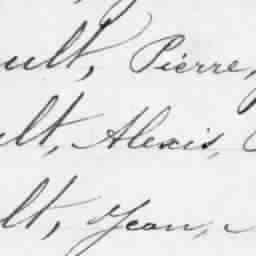 ult, Pierre,
ult, Alexis,
lt, Jean,